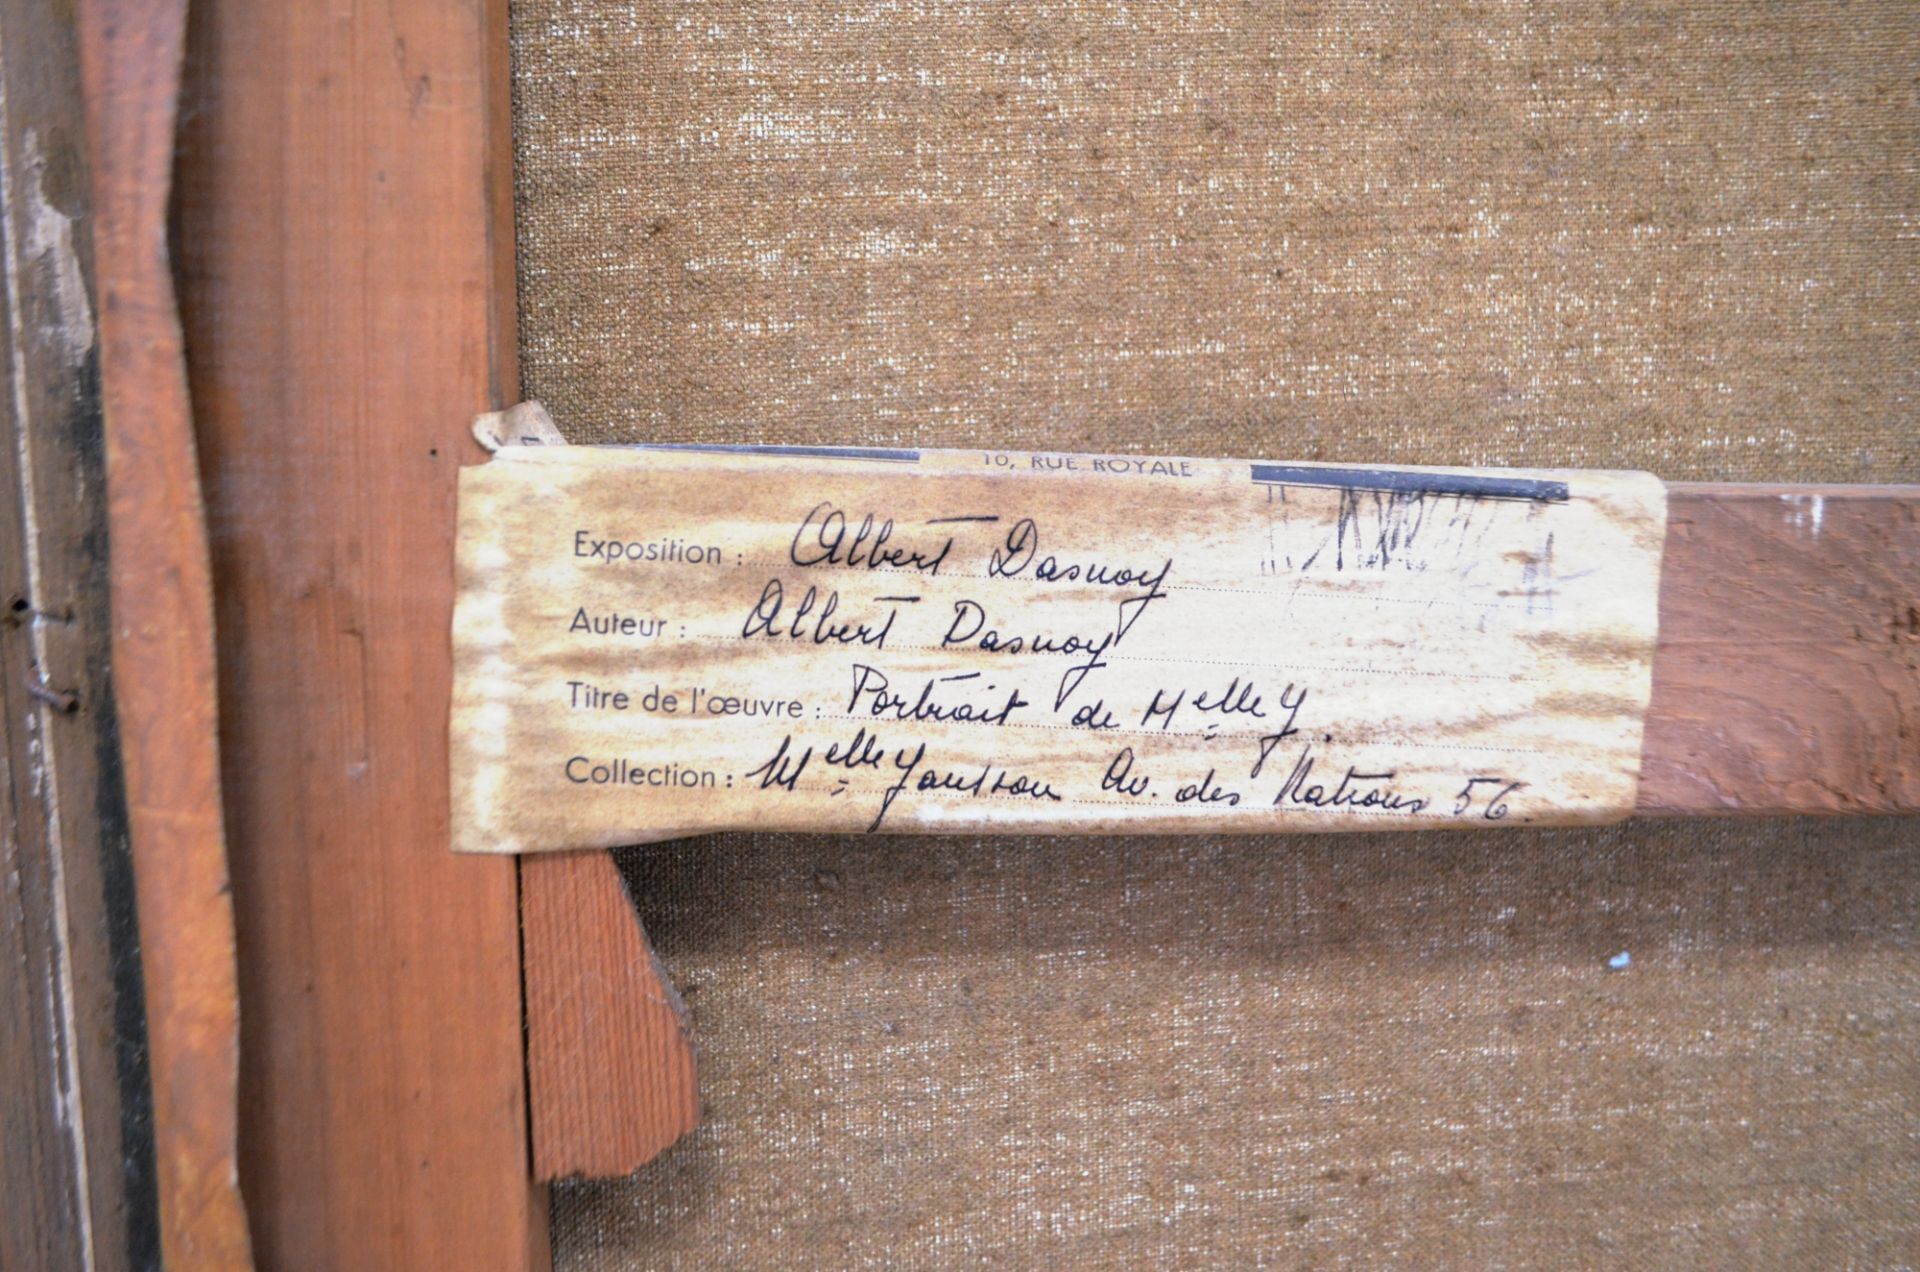 10, RUE ROYALE
Exposition : Albert Dasnoy
Auteur : Albert Dasnoy
Titre de l'œuvre : Portrait de Melle Y.
Collection : Melle Yansson Av. des Nations 56.